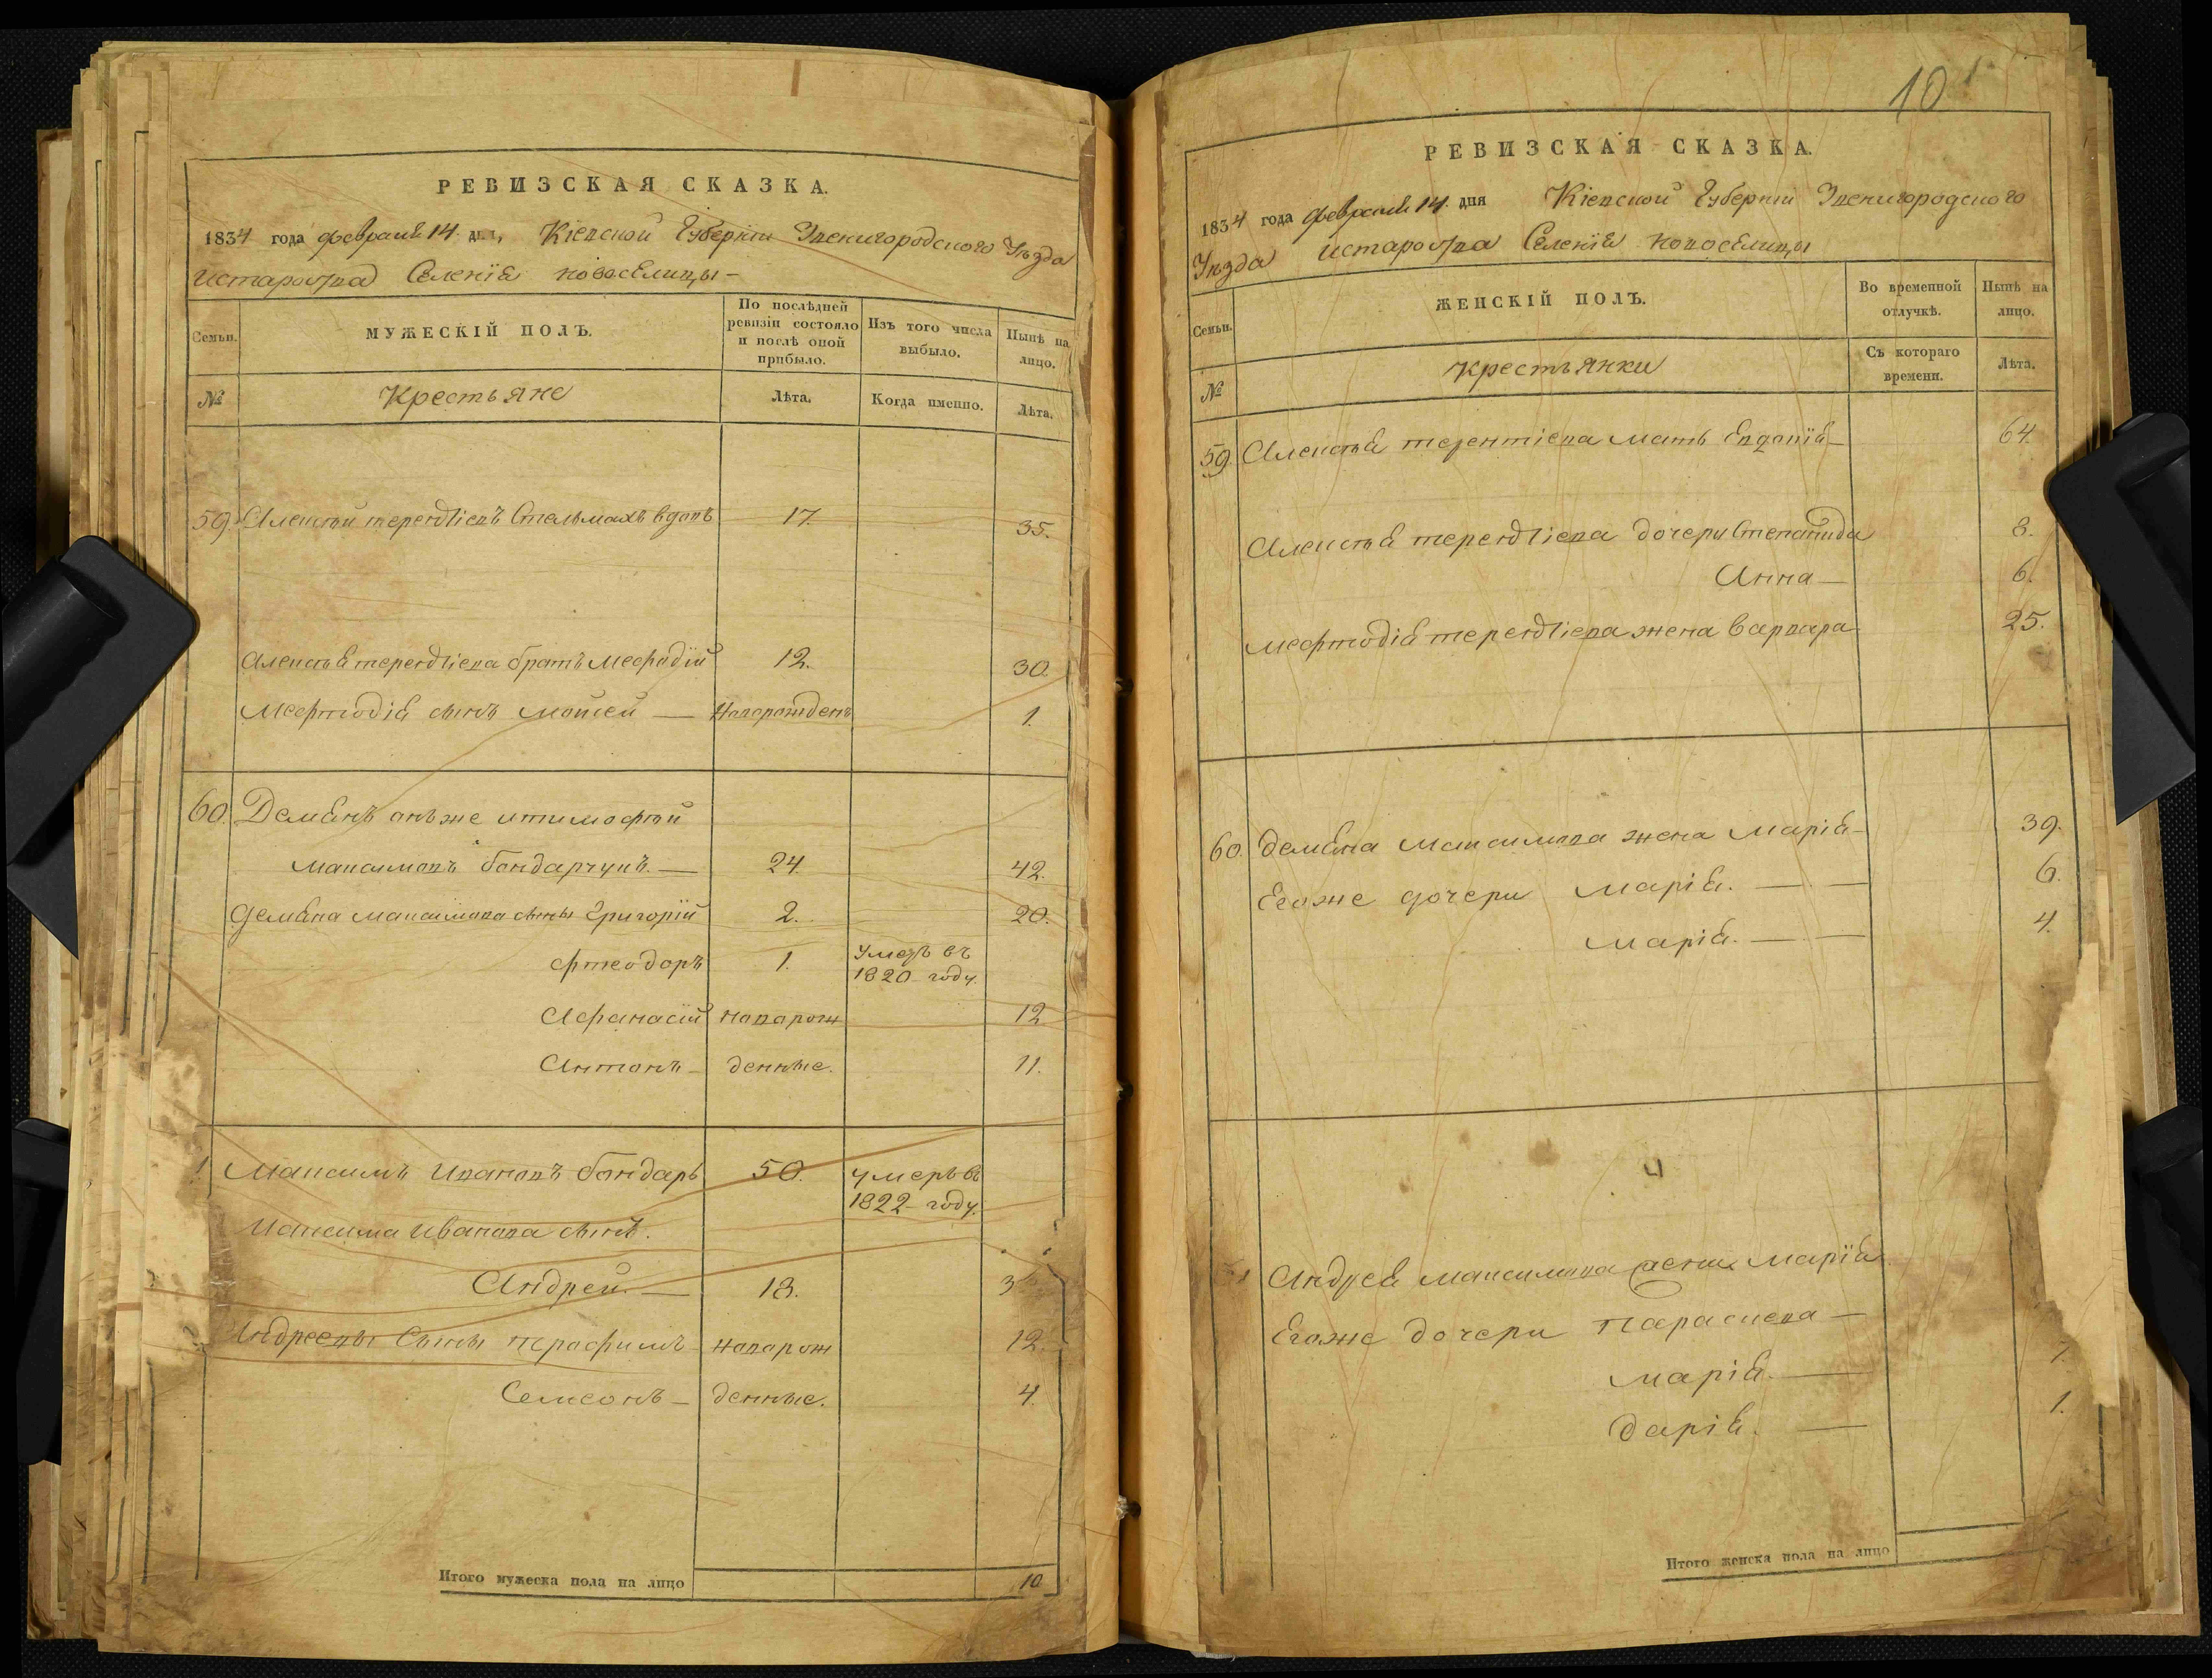 РЕВИЗСКАЯ СКАЗКА.
1834 года февраля 14 дня, Кіевской Губерніи Звенигородского Уѣзда
истароства Селенія новоселицы —
Семьи.
МУЖЕСКІЙ ПОЛЪ.
По послѣдней ревизіи состояло и послѣ оной прибыло.
Изъ того числа выбыло.
Нынѣ на лицо.
№
Крестьяне
Лѣта.
Когда именно.
Лѣта.
59. Алексѣй терентіевъ Стельмахъ вдовъ 17. 35.
Алексѣя терентіева братъ Мефодій 12. 30.
Мефтодія сынъ мойсей — Новорожденъ 1.
60. Демянъ онъже итимофѣй
максимовъ бондарчукъ. — 24. 42.
Демяна максимова сыны Григорій 2. 20.
фтеодоръ 1. умеръ въ
1820 году.
Афанасій новорож 12
Антонъ — денные. 11.
1 Максимъ Ивановъ бондарь 50. умеръ въ
1822 году.
Максима Иванова сынъ.
Андрей. — 18. 3
Андреевы Сыны
новорож 12.
Семеонъ — денные. 4.
Итого мужеска пола на лицо 10
10
РЕВИЗСКАЯ СКАЗКА.
1834 года февраля 14. дня Кіевской Губерніи Звенигородского
Уѣзда истароства Селенія новоселицы
Семьи.
ЖЕНСКІЙ ПОЛЪ.
Во временной отлучкѣ.
Нынѣ на лицо.
№
крестьянки
Съ котораго времени.
Лѣта.
59. Алексѣя терентіева мать Евдокія — 64.
Алексѣя терентіева дочери Степанида 8.
Анна — 6.
мефтодія терентіева жена варвара 25.
60. демяна максимова жена марія — 39.
Егоже дочери марія. — — 6.
марія. — — 4.
1 Андрея максимова жена марія
Егоже дочери параскева —
марія. — 7.
дарія. — 1.
Итого женска пола на лицо